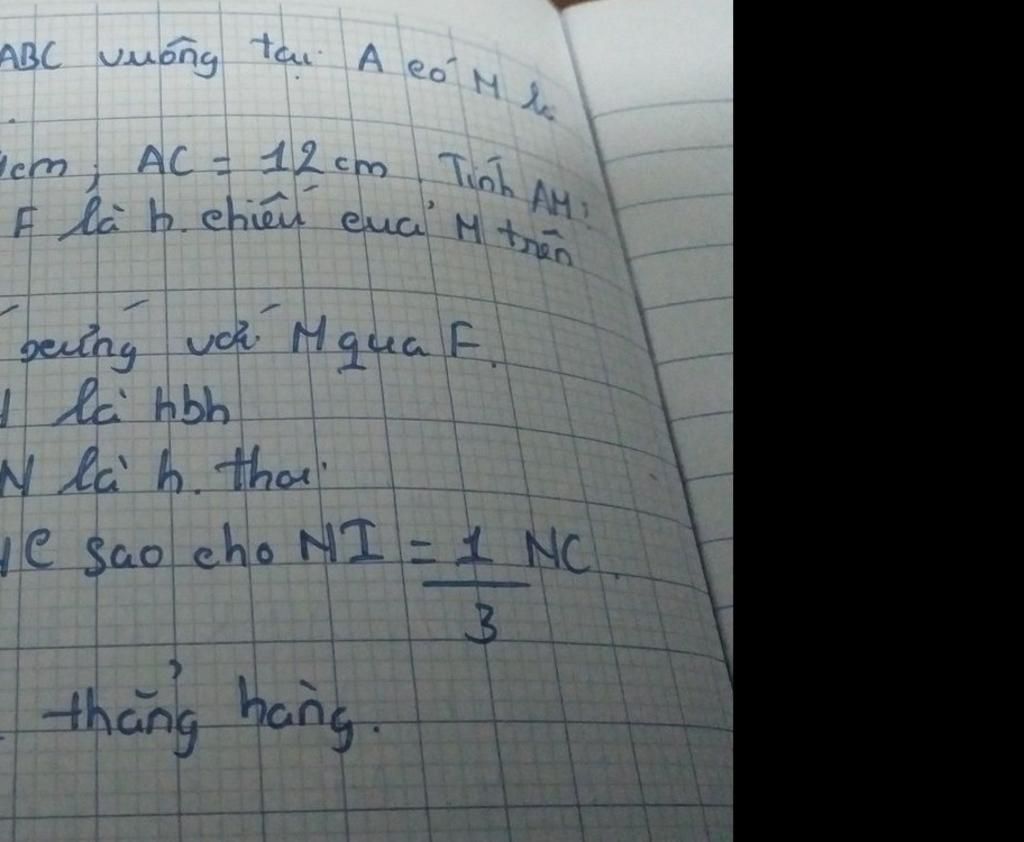 ABC vuông tại A có M là
cm, AC = 12 cm. Tính AM.
F là h. chiếu của M trên
với M qua F.
là hbh
N là h. thoi
C sao cho NI = 1/3 NC.
thẳng hàng.